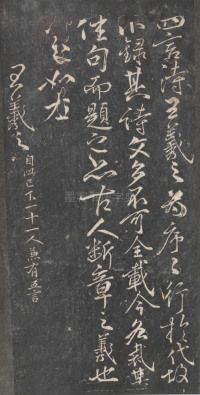 四言詩王羲之為序序行於代故
不錄其詩文多不可全載今各裁其
佳句而題之亦古人斷章之義也
王羲之
自此已下十一人兼有五言